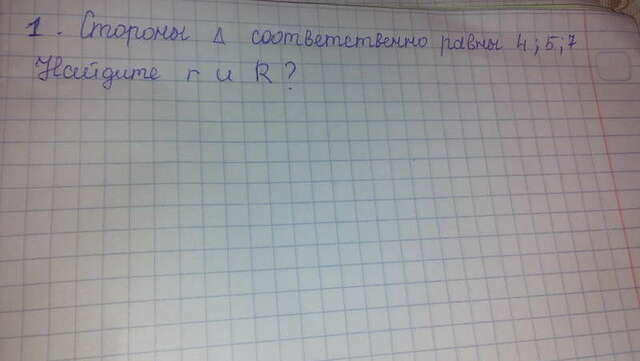 1. Стороны Δ соответственно равны 4; 5; 7
Найдите r и R?